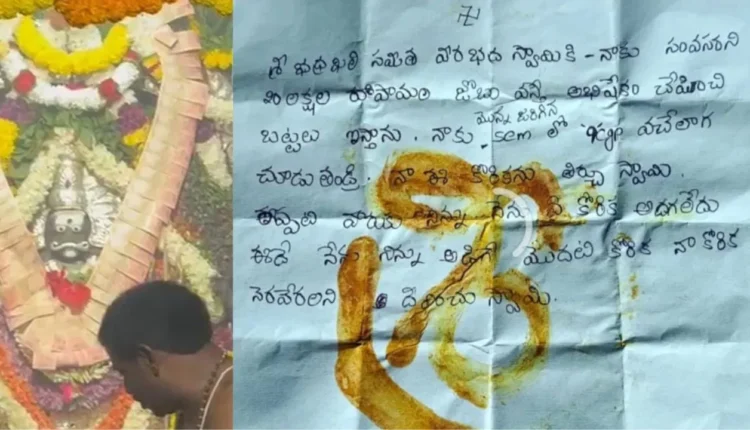 శ్రీ భద్రకాళి సమేత వీరభద్ర స్వామికి - నాకు సంవసరని
20 లక్షల రుపాయల జాబు వస్తే అభిషేకం చేపించి
బట్టలు ఇస్తాను. నాకు మొన్న జరిగిన sem లో వచేలాగ
చూడు తండ్రి. నా ఈ కోరికను తీర్చు స్వామి.
నిన్ను నేను ఏ కోరిక అడగలేదు
ఇదే నేను నిన్ను అడిగే మొదటి కోరిక నా కోరిక
నెరవేరాలని దీవించు స్వామి.